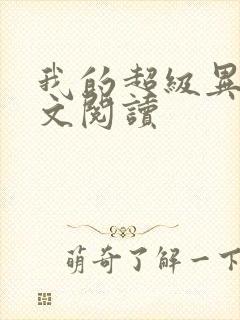 我的超級異
文閱讀
萌奇了解一下